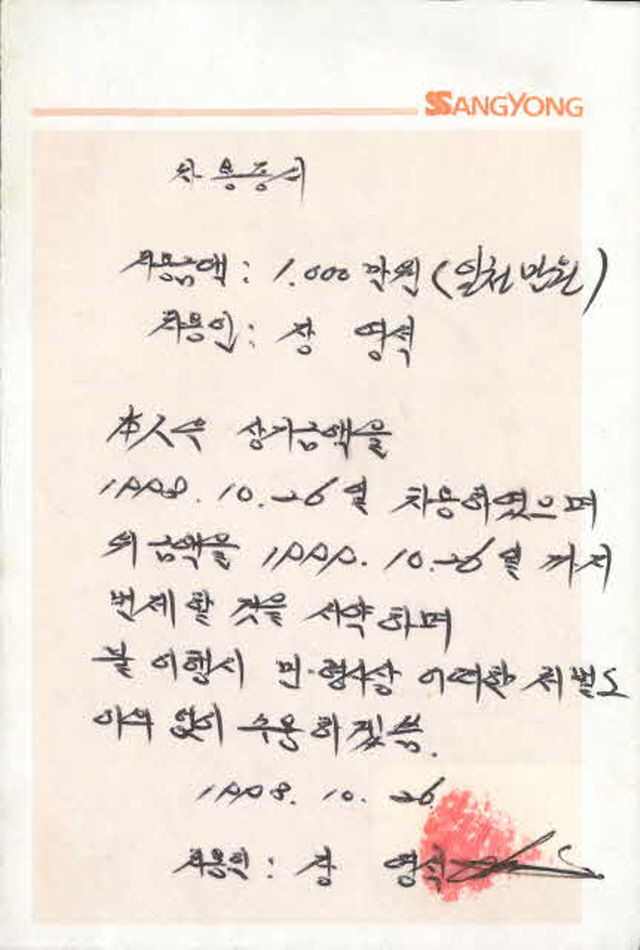 SSANGYONG
차용증서
차용금액 : 1.000 만원 (일천만원)
차용인 : 장 영석
本人은 상기금액을
1998. 10. 26일 차용하였으며
위 금액을 1999. 10. 26일 까지
변제할 것을 서약하며
불 이행시 민·형사상 어떠한 처벌도
이의 없이 수용하겠씀.
1998. 10. 26.
차용인 : 장 영석